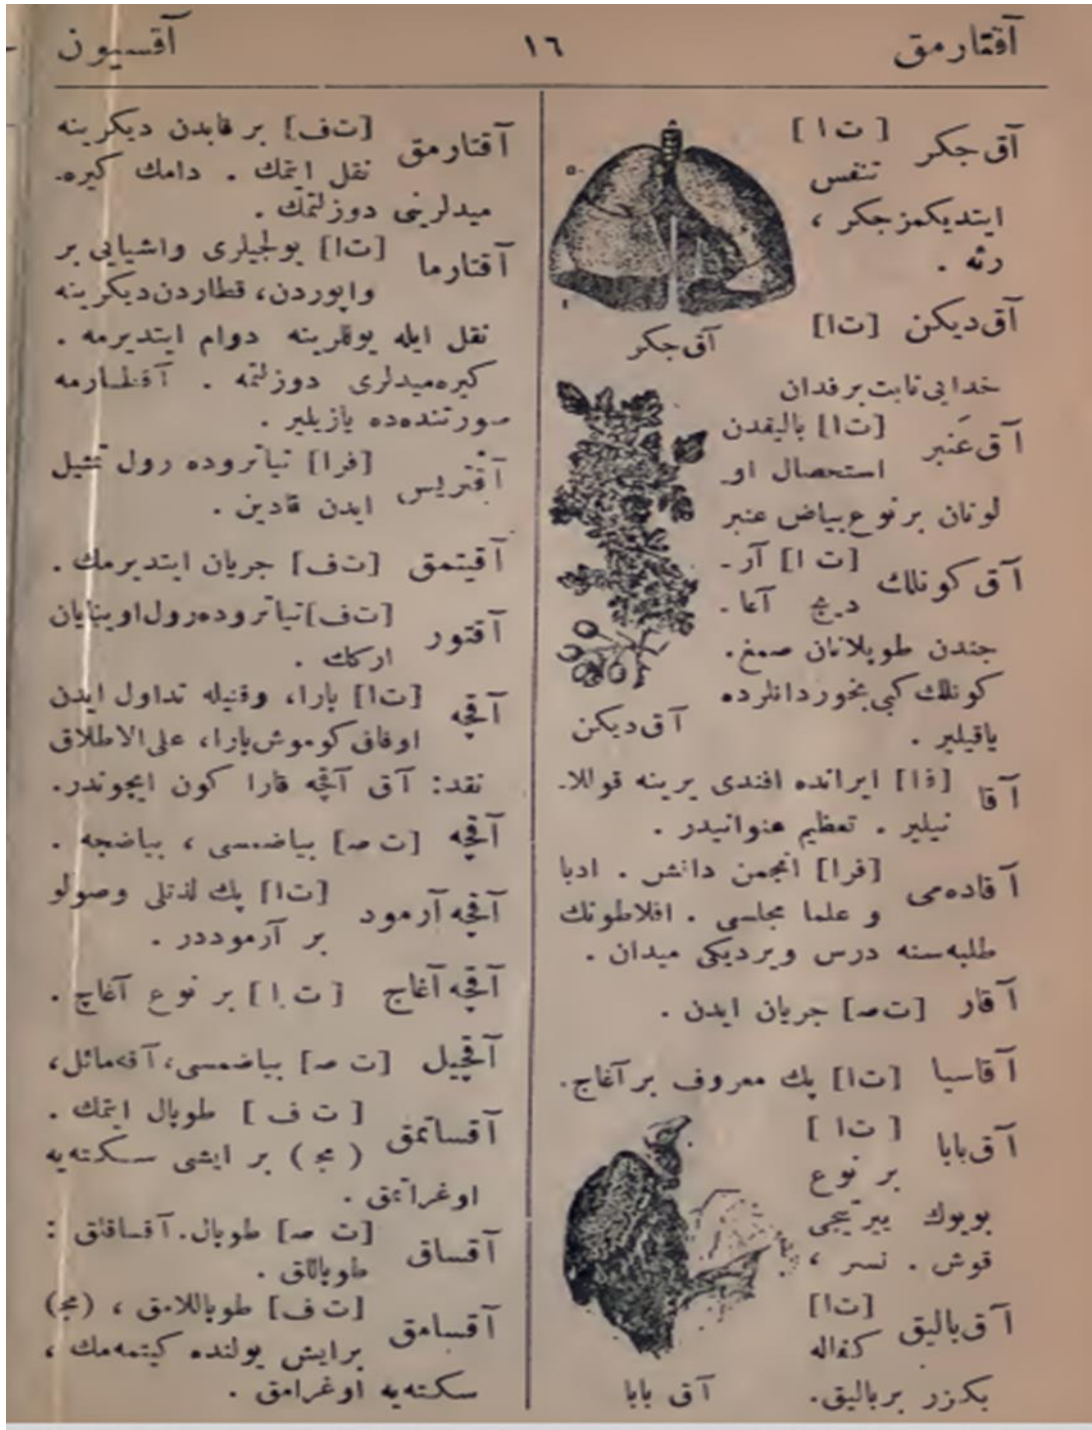 آقتارمق
١٦
آقسيون
آق جكر [ت ا]
تنفس
ايتديكمز جكر ،
رئه .
آق جكر
آق ديكن [تا]
خدايی نابت بر فدان
آق عنبر [تا] باليقدن
استحصال او-
لونان بر نوع بياض عنبر
آق كونلك [ت ا] آر-
ديج آغا-
جندن طوپلانان صمغ.
كونلك كبی بخوردانلرده
ياقيلير .
آق ديكن
آقا [فا] ايرانده افندی يرينه قوللا-
نيلير . تعظيم عنوانيدر .
آقاده‌می [فرا] انجمن دانش . ادبا
و علما مجلسی . افلاطونك
طلبه‌سنه درس ويرديكی ميدان .
آقار [تصـ] جريان ايدن .
آقاسيا [تا] پك معروف بر آغاج.
آق بابا [تا]
بر نوع
بويوك ييرتيجی
قوش . نسر ،
آق باليق [تا]
كفاله
بكزر بر باليق.
آق بابا
آقتارمق [تف] بر قابدن ديكرينه
نقل ايتمك . دامك كيره-
ميدلرينی دوزلتمك .
آقتارما [تا] يولجيلری واشيايی بر
واپوردن، قطاردن ديكرينه
نقل ايله يوللرينه دوام ايتديرمه .
كيره‌ميدلری دوزلتمه . آقطارمه
صورتنده‌ده يازيلير .
آقتريس [فرا] تياتروده رول تمثيل
ايدن قادين .
آقيتمق [تف] جريان ايتديرمك .
آقتور [تف] تياتروده رول اوينايان
اركك .
آقچه [تا] پارا، وقتيله تداول ايدن
اوفاق كوموش پارا، علی الاطلاق
نقد: آق آقچه قارا كون ايچوندر.
آقچه [ت صـ] بياضمسی ، بياضجه .
آقچه آرمود [تا] پك لذتلی وصولو
بر آرموددر .
آقچه آغاج [ت ا] بر نوع آغاج .
آقچيل [ت صـ] بياضمسی، آقه مائل،
آقساتمق [ت ف] طوپال ايتمك .
(مج) بر ايشی سكته‌يه
اوغراتمق .
آقساق [ت صـ] طوپال. آقساقلق :
طوپاللق .
آقسامق [تف] طوپاللامق ، (مج)
بر ايش يولنده كيتمه‌مك ،
سكته‌يه اوغرامق .